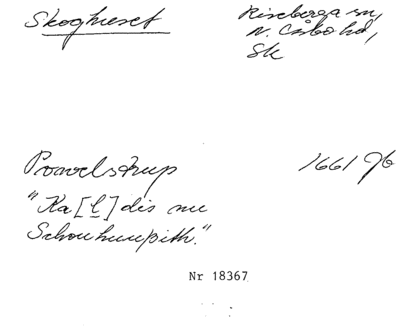 Skoghuset
Riseberga sn,
N. Åsbo hd,
Sk
Povvelstrup
1661 Jb
"Ka[l]dis nu
Schouhuusith."
Nr 18367